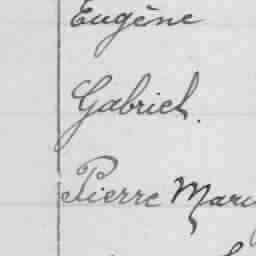 Eugène
Gabriel.
Pierre Mary